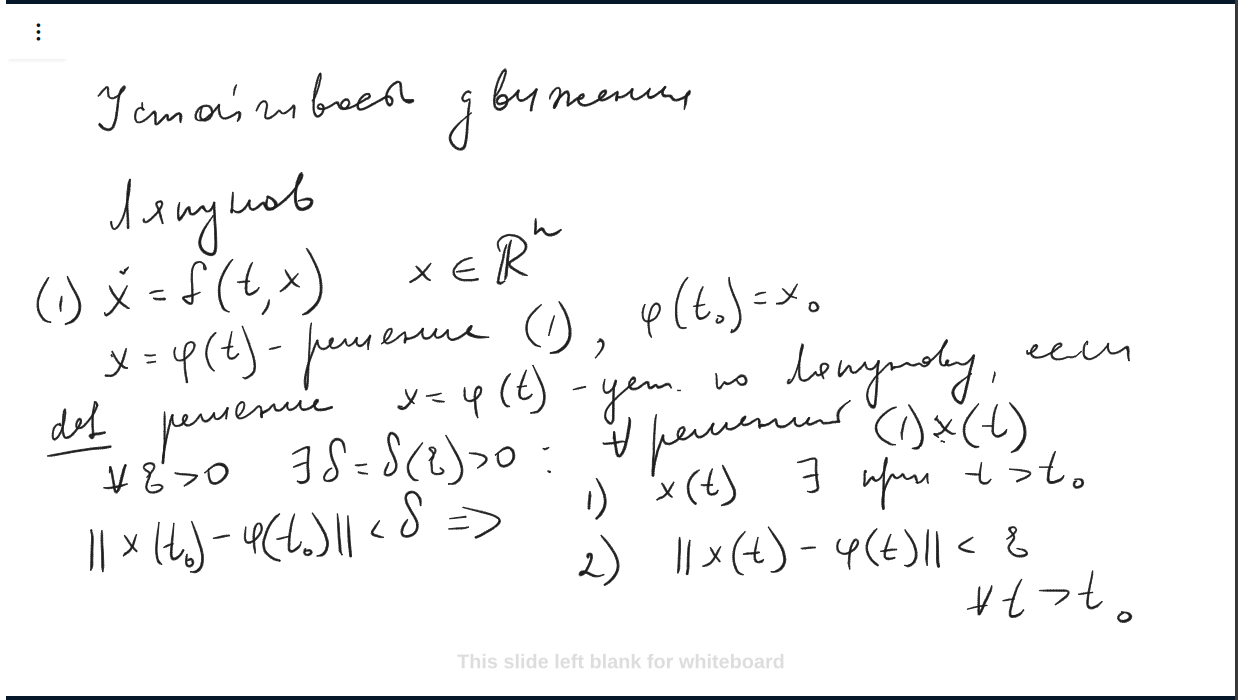 Устойчивость движения
Ляпунов
(1) ẋ = f(t, x) x ∈ ℝⁿ
x = φ(t) - решение (1), φ(t₀) = x₀
def решение x = φ(t) - уст. по Ляпунову, если
∀ ε > 0 ∃ δ = δ(ε) > 0 : ∀ решения (1) x(t)
||x(t₀) - φ(t₀)|| < δ ⇒ 1) x(t) ∃ при t > t₀
2) ||x(t) - φ(t)|| < ε
∀ t > t₀
This slide left blank for whiteboard